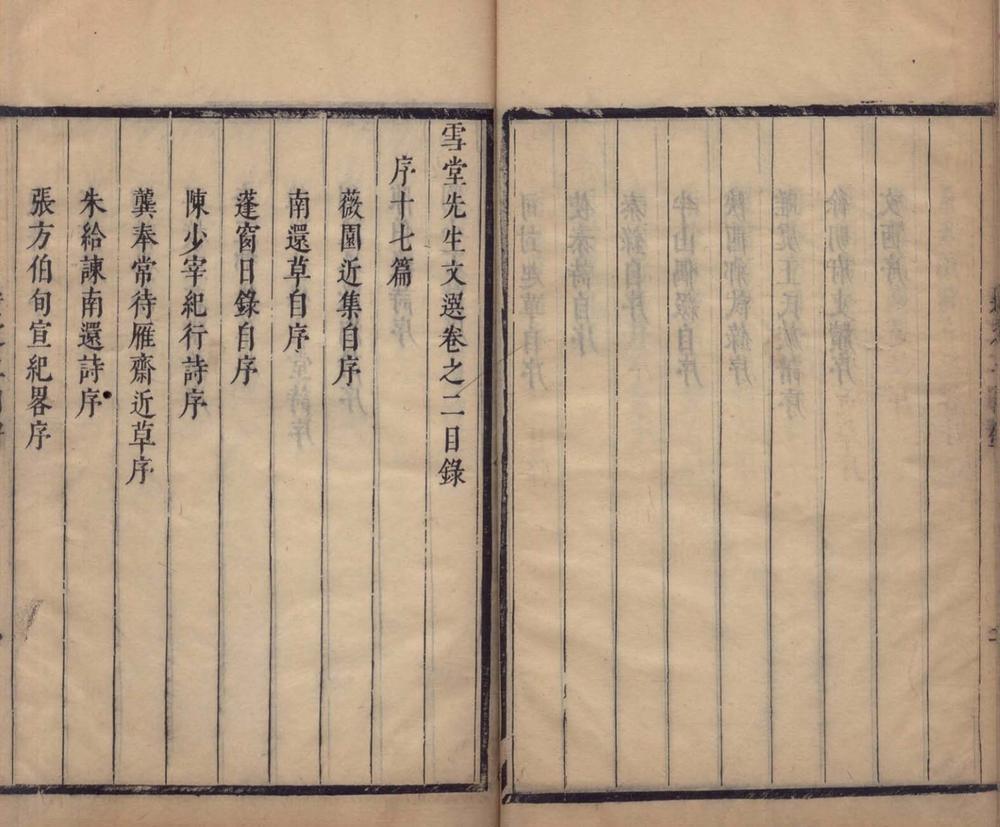 雪堂先生文選卷之二目錄
序十七篇
薇園近集自序
南還草自序
蓬窗日錄自序
陳少宰紀行詩序
龔奉常待雁齋近草序
朱給諫南還詩序
張方伯旬宣紀畧序